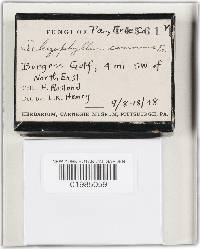 FUNGI OF Pa,
Schizophyllum commune Fr.
Burgess Gulf, 4 mi SW of
North East
H. Rutland
L.K. Henry
9/8-18/48
HERBARIUM, CARNEGIE MUSEUM, PITTSBURGH, PA.
01985059